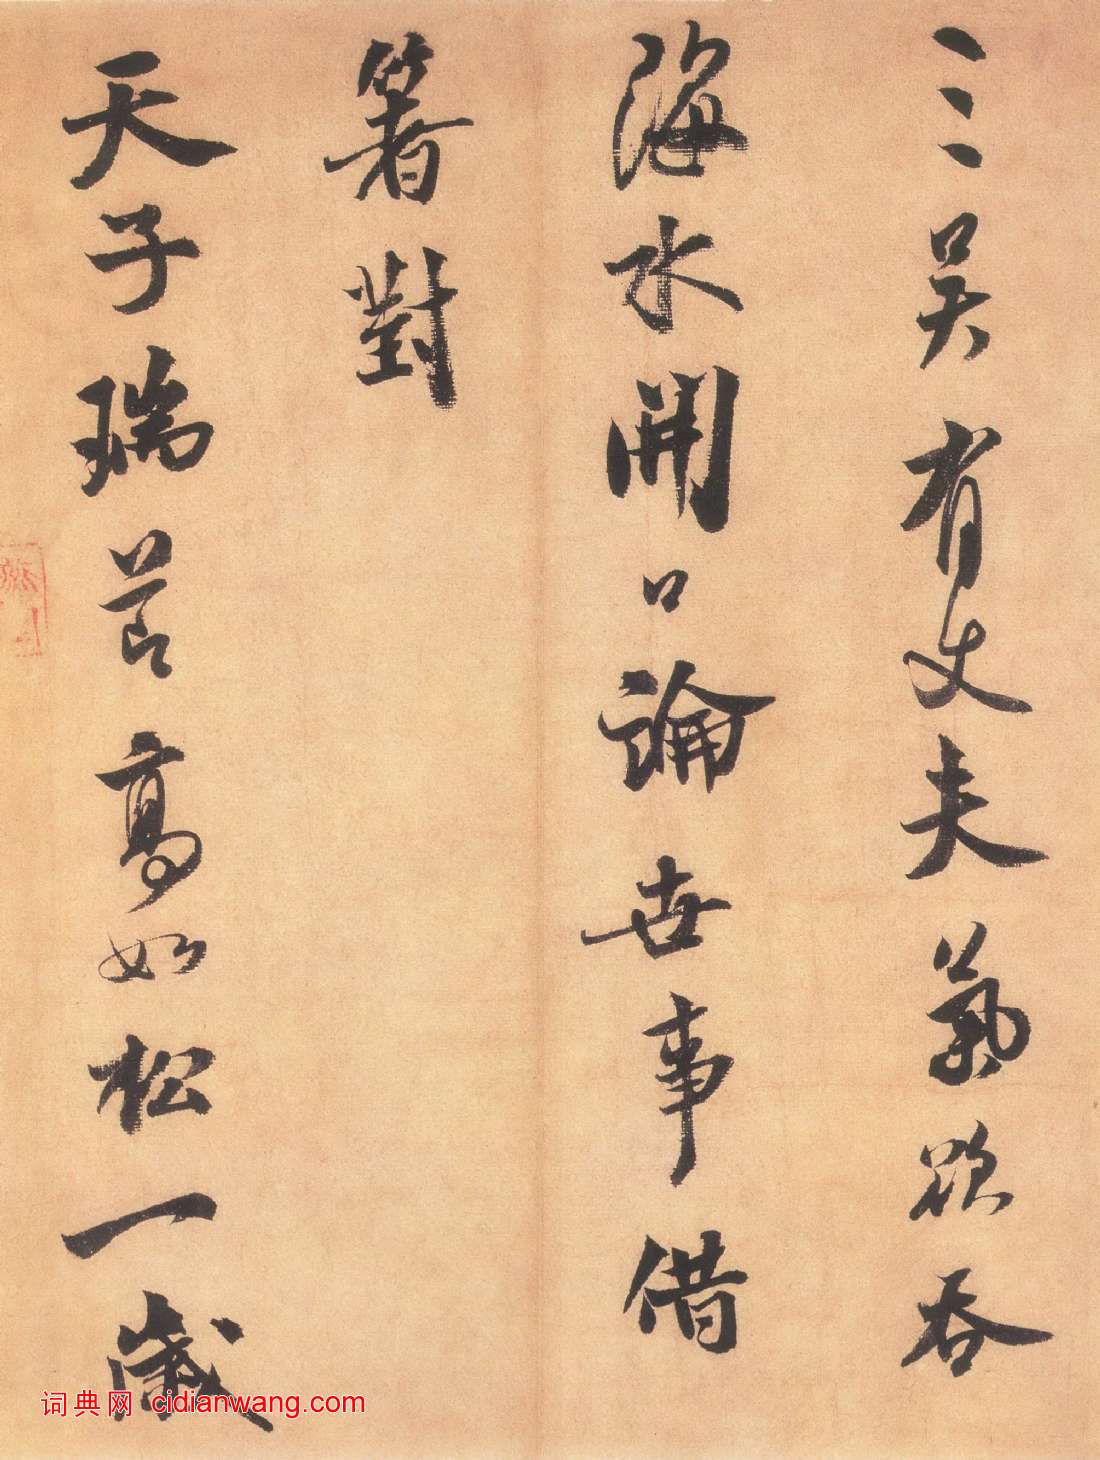 三吴有丈夫氣欲吞
海水開口論世事借
箸對
天子瑞節高如松一歲
词典网 cidianwang.com